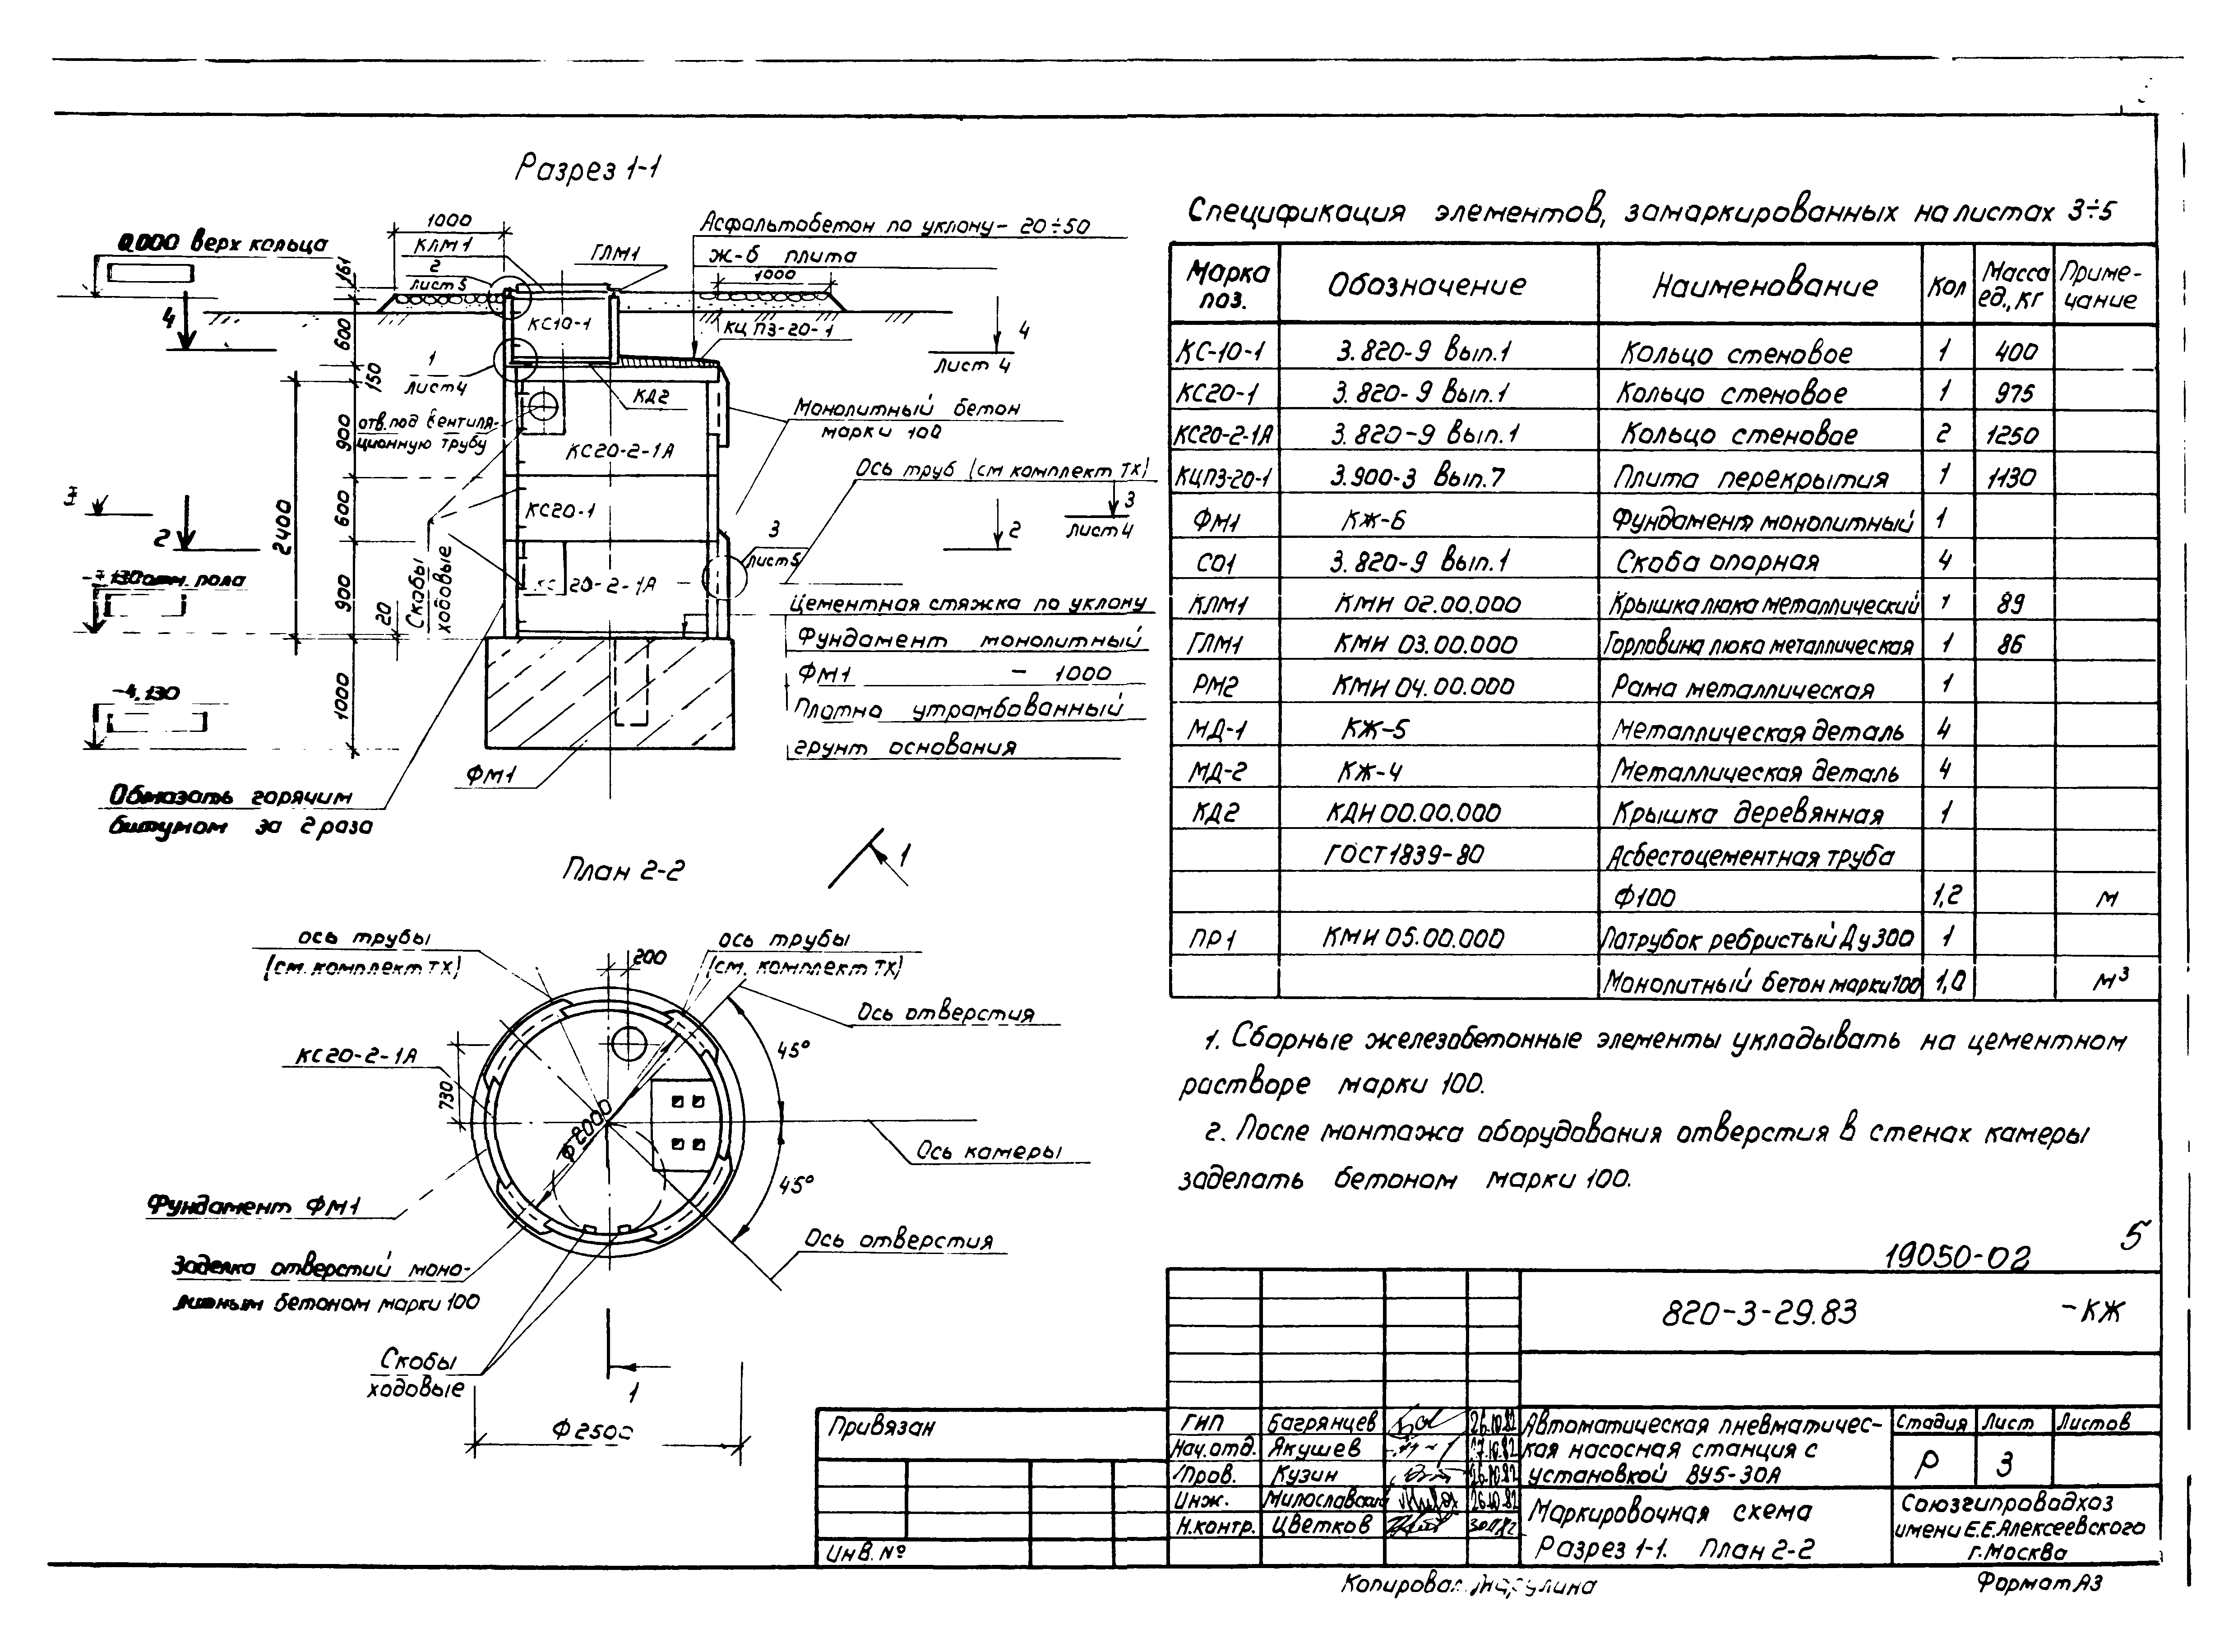 Разрез 1-1
1000
0.000 верх кольца
КЛМ1
2
лист 5
ГЛМ1
Асфальтобетон по уклону - 20÷50
ж-б плита
1000
161
4
КС10-1
КЦП3-20-1
4
лист 4
600
1
лист 4
150
КД2
Монолитный бетон
марки 100
отв. под вентиля-
ционную трубу
900
КС20-2-1А
Ось труб (см комплект ТХ)
2400
600
КС20-1
3
лист 4
2
2
3
лист 5
Скобы
ходовые
отм. пола
900
20
КС20-2-1А
Цементная стяжка по уклону
Фундамент монолитный
ФМ1 - 1000
Плотно утрамбованный
грунт основания
-4.130
1000
ФМ1
Обмазать горячим
битумом за 2 раза
План 2-2
1
ось трубы
(см. комплект ТХ)
200
ось трубы
(см. комплект ТХ)
Ось отверстия
КС20-2-1А
45°
730
Ф2000
Ось камеры
45°
Фундамент ФМ1
Ось отверстия
Заделка отверстий моно-
литным бетоном марки 100
Скобы
ходовые
1
Ф2500
Спецификация элементов, замаркированных на листах 3÷5
Марка поз. Обозначение Наименование Кол Масса ед., кг Приме-чание
КС-10-1 3.820-9 Вып.1 Кольцо стеновое 1 400
КС20-1 3.820-9 Вып.1 Кольцо стеновое 1 975
КС20-2-1А 3.820-9 Вып.1 Кольцо стеновое 2 1250
КЦП3-20-1 3.900-3 Вып.7 Плита перекрытия 1 1130
ФМ1 КЖ-6 Фундамент монолитный 1
СО1 3.820-9 Вып.1 Скоба опорная 4
КЛМ1 КМИ 02.00.000 Крышка люка металлический 1 89
ГЛМ1 КМИ 03.00.000 Горловина люка металлическая 1 86
РМ2 КМИ 04.00.000 Рама металлическая 1
МД-1 КЖ-5 Металлическая деталь 4
МД-2 КЖ-4 Металлическая деталь 4
КД2 КДИ 00.00.000 Крышка деревянная 1
ГОСТ 1839-80 Асбестоцементная труба
Ф100 1,2 м
ПР1 КМИ 05.00.000 Патрубок ребристый Ду300 1
Монолитный бетон марки 100 1,0 м³
1. Сборные железобетонные элементы укладывать на цементном
растворе марки 100.
2. После монтажа оборудования отверстия в стенах камеры
заделать бетоном марки 100.
5
19050-02
820-3-29.83 -КЖ
Привязан
Инв. №
ГИП Багрянцев 26.10.82
Нач. отд. Якушев 27.10.82
Пров. Кузин 26.10.82
Инж. Милославский 26.10.82
Н.контр. Цветков
Автоматическая пневматичес-
кая насосная станция с
установкой ВУ5-30А
Стадия Лист Листов
Р 3
Маркировочная схема
Разрез 1-1. План 2-2
Союзгипроводхоз
имени Е.Е.Алексеевского
г. Москва
Копировал
Формат А3